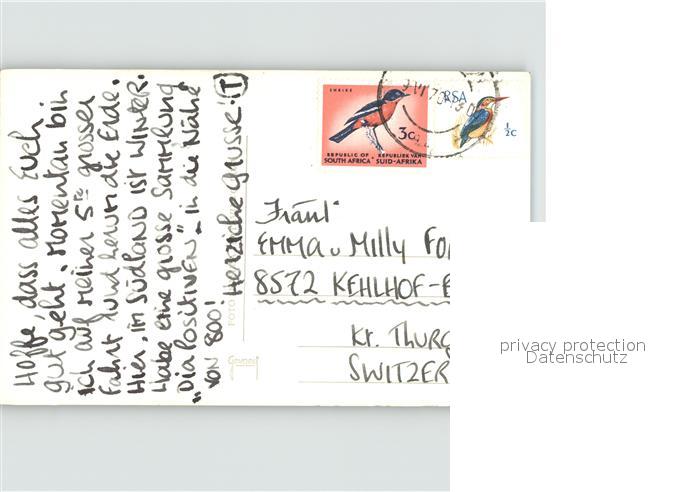 Hoffe, dass alles Euch
gut geht. Momentan bin
ich auf meiner 5te grosser
Fahrt rund herum die Erde.
Hier, im Südland ist Winter.
Habe eine grosse Sammlung
„Dia Positiven" – in die Nähe
von 800! Herzliche Grüsse!
SHRIKE
REPUBLIC OF SOUTH AFRICA
REPUBLIEK VAN SUID-AFRIKA
3c
RSA
½c
"Fräul"
EMMA u Milly
8572 KEHLHOF-
Kt. THURG
SWITZER
FOTO
privacy protection
Datenschutz